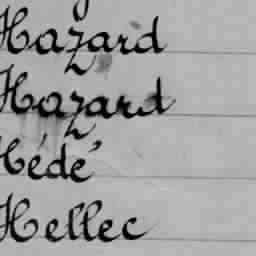 Hazard
Hazard
Hédé
Hellec